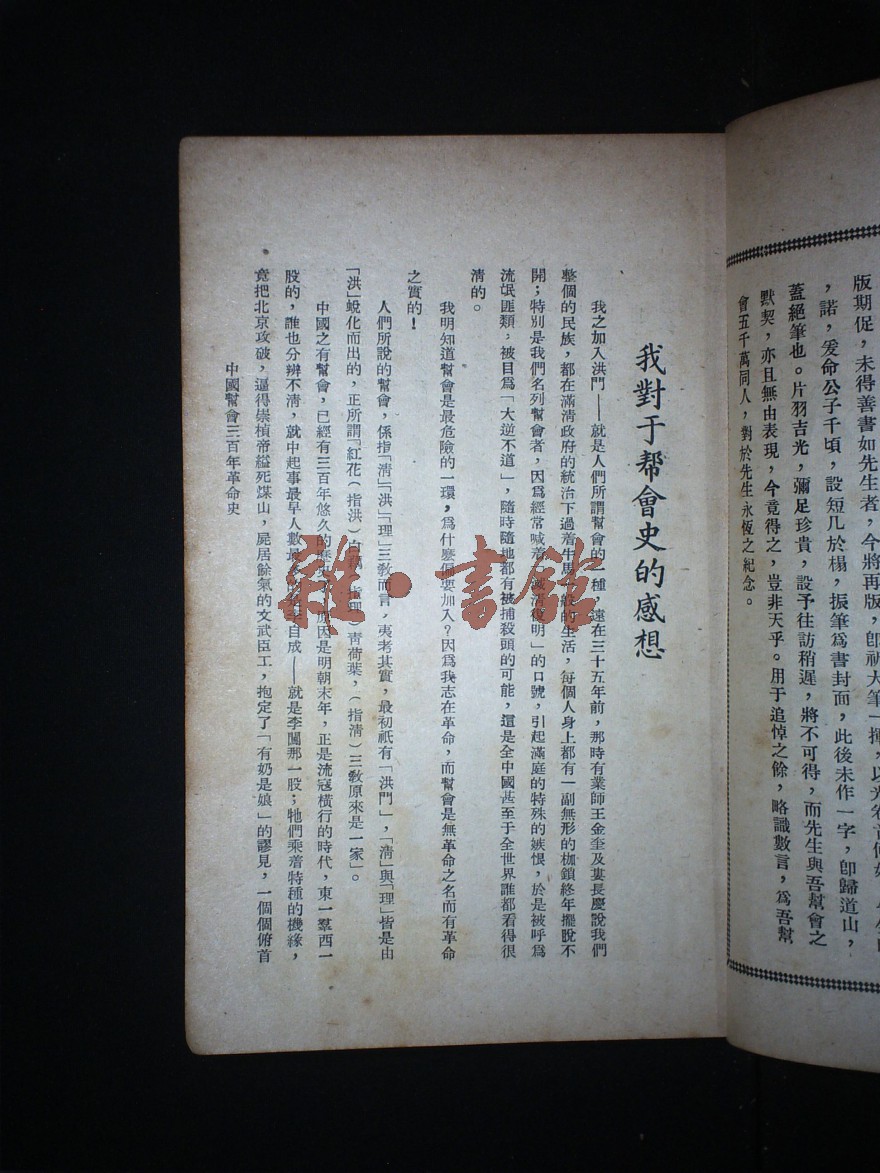 版期促，未得善書如先生者，今將再版，卽祈大筆一揮，以光卷首何如
，諾，爰命公子千頃，設短几於榻，振筆爲書封面，此後未作一字，卽歸道山，
蓋絕筆也。片羽吉光，彌足珍貴，設予往訪稍遲，將不可得，而先生與吾幫會之
默契，亦且無由表現，今竟得之，豈非天乎。用于追悼之餘，略識數言，爲吾幫
會五千萬同人，對於先生永恆之紀念。
我對于帮會史的感想
我之加入洪門——就是人們所謂幫會的一種，遠在三十五年前，那時有業師王金奎及婁長慶說我們
整個的民族，都在滿清政府的統治下過着牛馬一般的生活，每個人身上都有一副無形的枷鎖終年擺脫不
開；特別是我們名列幫會者，因爲經常喊着「滅清復明」的口號，引起滿庭的特殊的嫉恨，於是被呼爲
流氓匪類，被目爲「大逆不道」，隨時隨地都有被捕殺頭的可能，這是全中國甚至于全世界誰都看得很
清的。
我明知道幫會是最危險的一環，爲什麼偏要加入？因爲我志在革命，而幫會是無革命之名而有革命
之實的！
人們所說的幫會，係指「清」「洪」「理」三教而言，夷考其實，最初祇有「洪門」，「清」與「理」皆是由
「洪」蛻化而出的，正所謂「紅花（指洪）白藕（指理）靑荷葉，（指清）三教原來是一家」。
中國之有幫會，已經有三百年悠久的歷史，原因是明朝末年，正是流寇橫行的時代，東一羣西一
股的，誰也分辨不清，就中起事最早人數最的是李自成——就是李闖那一股；牠們乘着特種的機緣，
竟把北京攻破，逼得崇楨帝縊死煤山，屍居餘氣的文武臣工，抱定了「有奶是娘」的謬見，一個個俯首
中國幫會三百年革命史
雜·書館